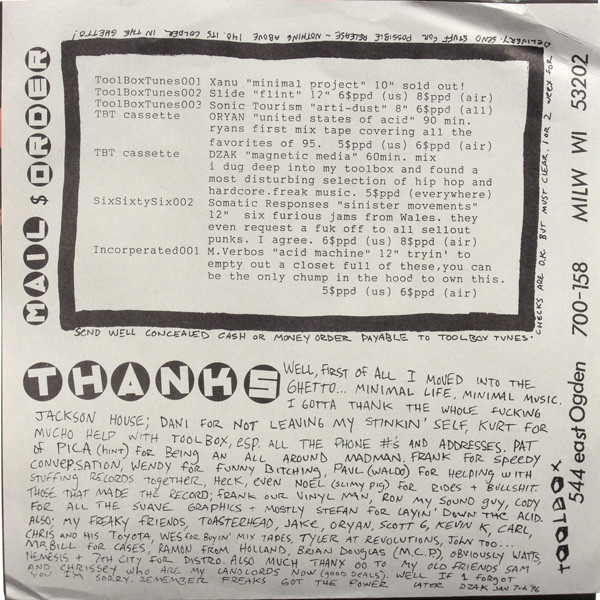 MAIL $ ORDER
ToolBoxTunes001 Xanu "minimal project" 10" sold out!
ToolBoxTunes002 Slide "flint" 12" 6$ppd (us) 8$ppd (air)
ToolBoxTunes003 Sonic Tourism "arti-dust" 8" 6$ppd (all)
TBT cassette ORYAN "united states of acid" 90 min.
ryans first mix tape covering all the
favorites of 95. 5$ppd (us) 6$ppd (air)
TBT cassette DZAK "magnetic media" 60min. mix
i dug deep into my toolbox and found a
most disturbing selection of hip hop and
hardcore.freak music. 5$ppd (everywhere)
SixSixtySix002 Somatic Responses "sinister movements"
12" six furious jams from Wales. they
even request a fuk off to all sellout
punks. I agree. 6$ppd (us) 8$ppd (air)
Incorperated001 M.Verbos "acid machine" 12" tryin' to
empty out a closet full of these,you can
be the only chump in the hood to own this.
5$ppd (us) 6$ppd (air)
SEND WELL CONCEALED CASH OR MONEY ORDER PAYABLE TO TOOLBOX TUNES.
CHECKS ARE O.K. BUT MUST CLEAR. 1 OR 2 WEEK FOR
DELIVERY. SEND STUFF FOR POSSIBLE RELEASE - NOTHING ABOVE 140. ITS COLDER IN THE GHETTO!
tOOLBOX
544 east Ogden 700-158 MILW WI 53202
THANKS
WELL, FIRST OF ALL I MOVED INTO THE
GHETTO... MINIMAL LIFE, MINIMAL MUSIC.
I GOTTA THANK THE WHOLE FUCKING
JACKSON HOUSE; DANI FOR NOT LEAVING MY STINKIN' SELF, KURT FOR
MUCHO HELP WITH TOOLBOX, ESP. ALL THE PHONE #'S AND ADDRESSES. PAT
OF PICA (hint) FOR BEING AN ALL AROUND MADMAN. FRANK FOR SPEEDY
CONVERSATION, WENDY FOR FUNNY BITCHING, PAUL (WALDO) FOR HELPING WITH
STUFFING RECORDS TOGETHER, HECK, EVEN NOEL (SLIMY PIG) FOR RIDES + BULLSHIT.
THOSE THAT MADE THE RECORD; FRANK OUR VINYL MAN, RON MY SOUND GUY, CODY
FOR ALL THE SUAVE GRAPHICS + MOSTLY STEFAN FOR LAYIN' DOWN THE ACID.
ALSO; MY FREAKY FRIENDS, TOASTERHEAD, JAKE, ORYAN, SCOTT G, KEVIN K, CARL,
CHRIS AND HIS TOYOTA, WES FOR BUYIN' MIX TAPES, TYLER AT REVOLUTIONS, JOHN TOO...
MR. BILL FOR CASES, RAMON FROM HOLLAND, BRIAN DOUGLAS (M.C.P.), OBVIOUSLY NATTY,
NEMESIS + 7TH CITY FOR DISTRO. ALSO MUCH THANX GO TO MY OLD FRIENDS SAM
AND CHRISSEY WHO ARE MY LANDLORDS NOW (GOOD DEALS). WELL IF I FORGOT
YOU I'M SORRY. REMEMBER FREAKS GOT THE POWER LATER DZAK JAN 7TH 96